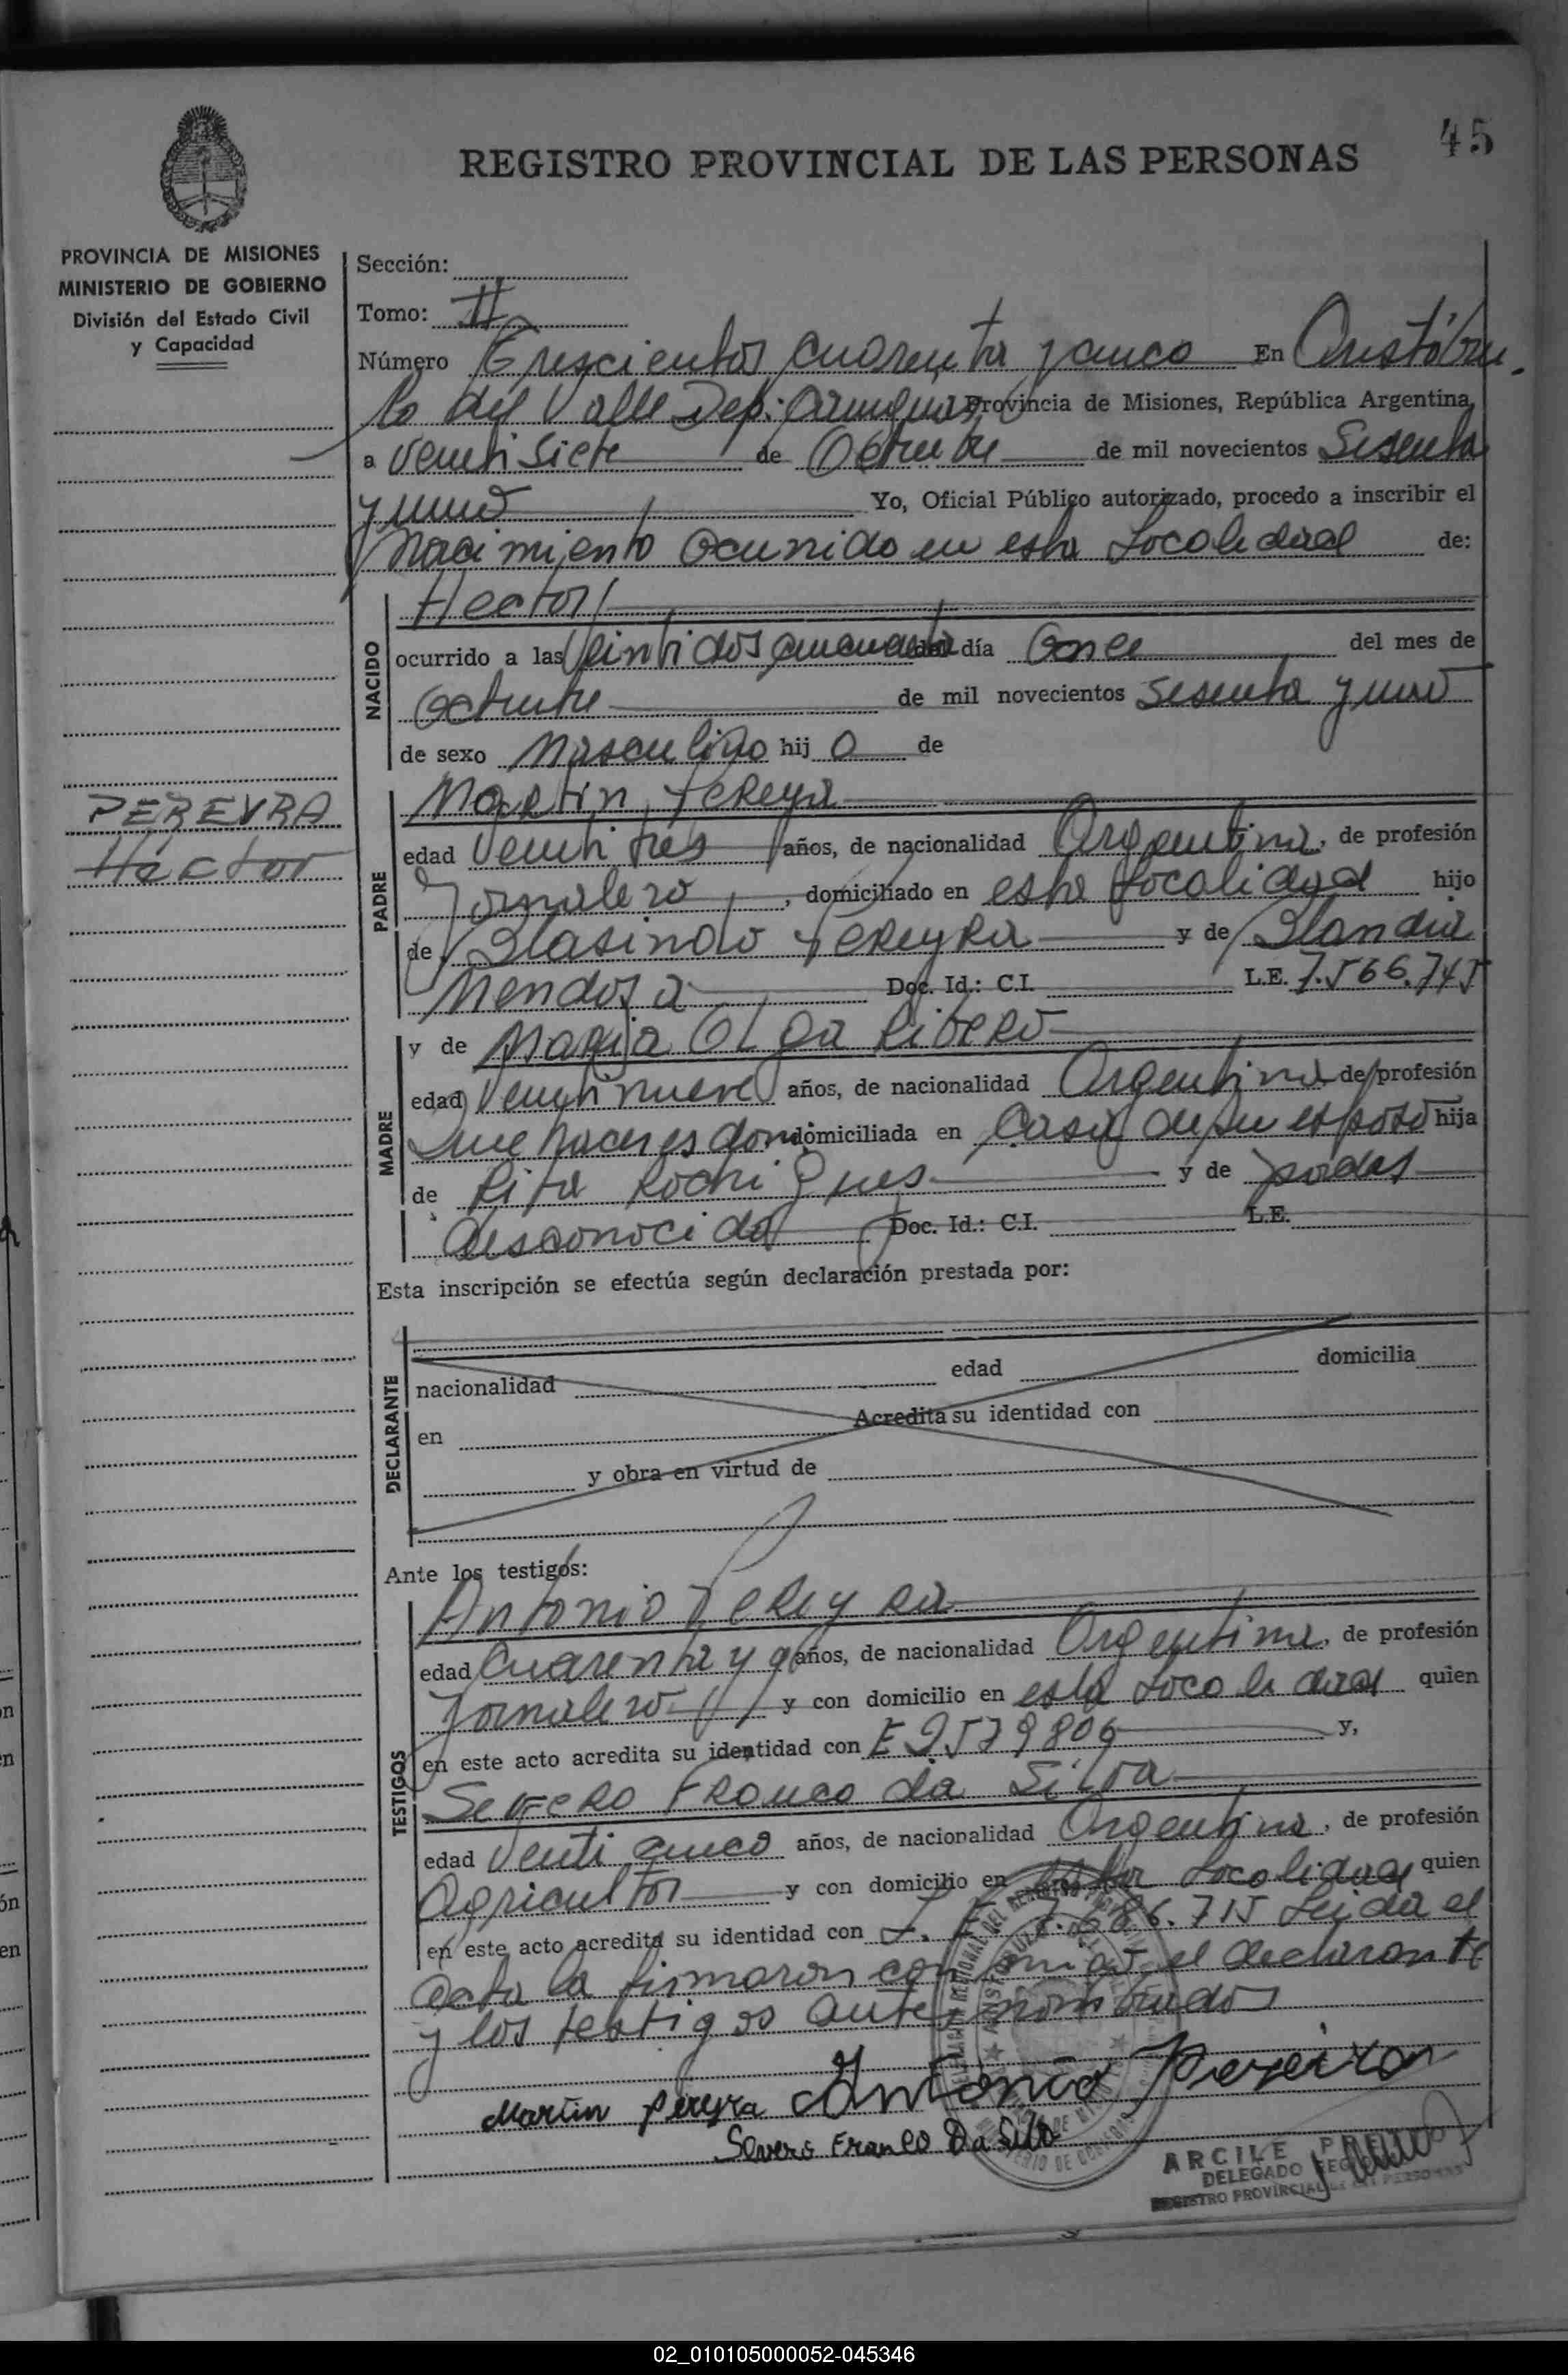 45
REGISTRO PROVINCIAL DE LAS PERSONAS
PROVINCIA DE MISIONES
MINISTERIO DE GOBIERNO
División del Estado Civil
y Capacidad
Sección:
Tomo: II
Número Trescientos cuarenta y cinco En Aristóbu-
lo del Valle Dep: Cainguas, Provincia de Misiones, República Argentina,
a Ventisiete de Octubre de mil novecientos Sesenta
y uno Yo, Oficial Público autorizado, procedo a inscribir el
Nacimiento Ocurrido en esta Localidad de:
NACIDO
Hector
ocurrido a las Veintidos cincuenta del día Once del mes de
Octubre de mil novecientos Sesenta y uno
de sexo Masculino hij o de
PEREYRA
Héctor
PADRE
Martin Pereyra
edad Ventitres años, de nacionalidad Argentina, de profesión
Jornalero, domiciliado en esta Localidad hijo
de Blasindo Pereyra y de Blandia
Mendosa Doc. Id.: C.I. L.E. 7.566.745
MADRE
y de Maria Olga Ribero
edad Ventinueve años, de nacionalidad Argentina de profesión
Quehaceres dom: domiciliada en Casa de su esposo hija
de Rita Rodrigues y de padres
desconocido Doc. Id.: C.I. L.E.
Esta inscripción se efectúa según declaración prestada por:
DECLARANTE
nacionalidad edad domicilia
en Acredita su identidad con
y obra en virtud de
Ante los testigos:
TESTIGOS
Antonio Pereyra
edad Cuarenta y años, de nacionalidad Argentina, de profesión
Jornalero y con domicilio en esta Localidad quien
en este acto acredita su identidad con E 2579806 y,
Severo Franco da Silva
edad Venti cinco años, de nacionalidad Argentina, de profesión
Agricultor y con domicilio en esta Localidad quien
en este acto acredita su identidad con L.E. 7.686.715 Leida el
acta la firmaron conmigo, el declarante
y los testigos ante nombrados
Martin Pereyra Antonio Pereira
Severo Franco Da Silva
ARCILE
DELEGADO
REGISTRO PROVINCIAL DE LAS PERSONAS
02_010105000052-045346